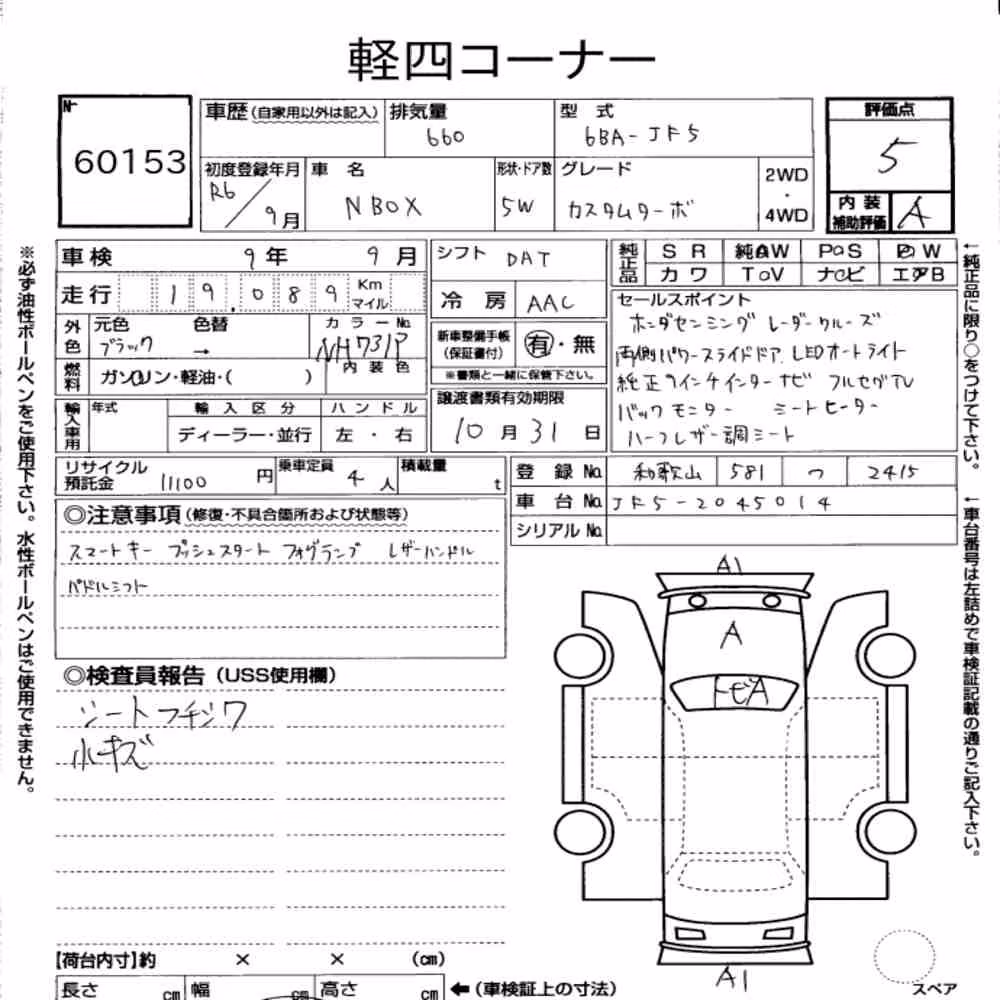 軽四コーナー
No
60153
車歴(自家用以外は記入) 排気量 660 型式 6BA-JF5
評価点 5
初度登録年月 R6/9月 車名 NBOX 形状・ドア数 5W グレード カスタムターボ 2WD・4WD
内装補助評価 A
車検 9年 9月
シフト DAT
純正品 SR 純AW PS PW
カワ TV ナビ エアB
走行 19,089 Km マイル
冷房 AAC
セールスポイント
ホンダセンシング レーダークルーズ
両側パワースライドドア LEDオートライト
純正9インチインターナビ フルセグTV
バックモニター シートヒーター
ハーフレザー調シート
外色 元色 ブラック 色替 → カラーNo. NH731P
内装色
新車整備手帳(保証書付) 有・無
※書類と一緒に保管下さい。
燃料 ガソリン・軽油・( )
譲渡書類有効期限
10月31日
輸入車用 年式 輸入区分 ハンドル
ディーラー・並行 左・右
リサイクル預託金 11100円 乗車定員 4人 積載量 t
登録No. 和歌山 581 つ 2415
車台No. JF5-2045014
シリアルNo.
◎注意事項(修復・不具合箇所および状態等)
スマートキー プッシュスタート フォグランプ レザーハンドル
パドルシフト
◎検査員報告(USS使用欄)
シートフチシワ
小キズ
A1
A
トビA
A1
スペア
【荷台内寸】約 × × (cm)
長さ cm 幅 cm 高さ cm ←(車検証上の寸法)
※必ず油性ボールペンをご使用下さい。水性ボールペンはご使用できません。
←純正品に限り○をつけて下さい。
←車台番号は左詰めで車検証記載の通りご記入下さい。